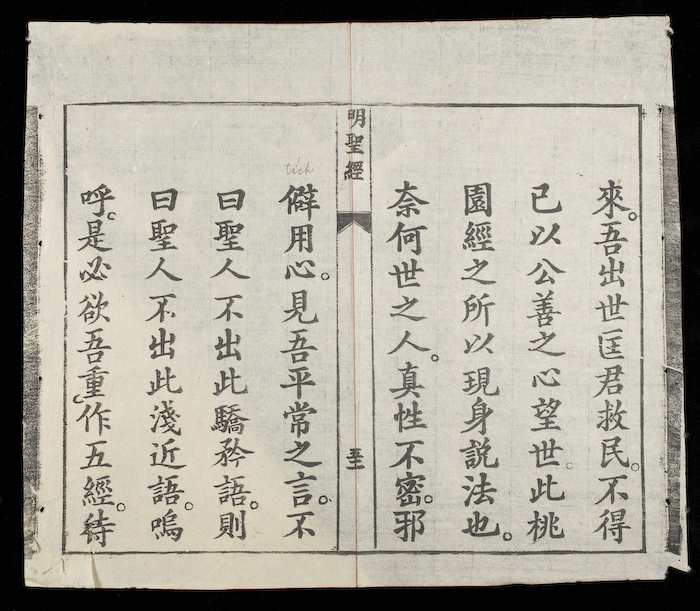 來。吾出世匡君救民。不得
已以公善之心望世。此桃
園經之所以現身説法也。
奈何世之人。真性不密。邪
明聖經
五十一
tích
僻用心。見吾平常之言。不
曰聖人不出此驕矜語。則
曰聖人不出此淺近語。嗚
呼。是必欲吾重作五經。待